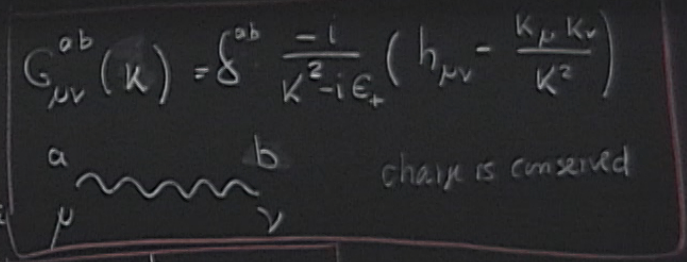 G^{ab}_{μν}(k) = δ^{ab} \frac{-i}{k^2 - iε_+} (h_{μν} - \frac{k_μ k_ν}{k^2})
a b
μ ν
charge is conserved